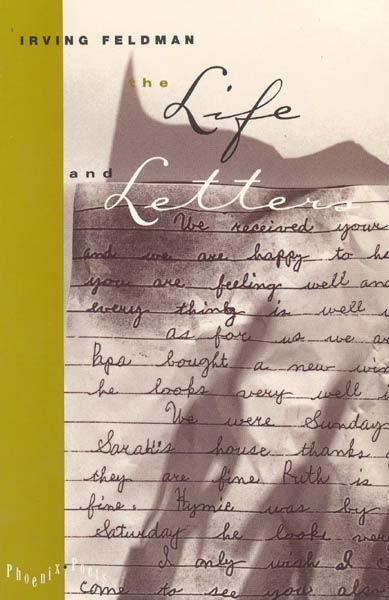 IRVING FELDMAN
the
Life
and
Letters
We received your
and we are happy to he
you are feeling well and
every thing is well w
as for us we ar
Papa bought a new win
he looks very well i
We were Sunday
Sarah's house thanks
they are fine Ruth is
fine. Hymie was by
Saturday he looks were
I only wish I c
come to see you also
Phoenix Poets